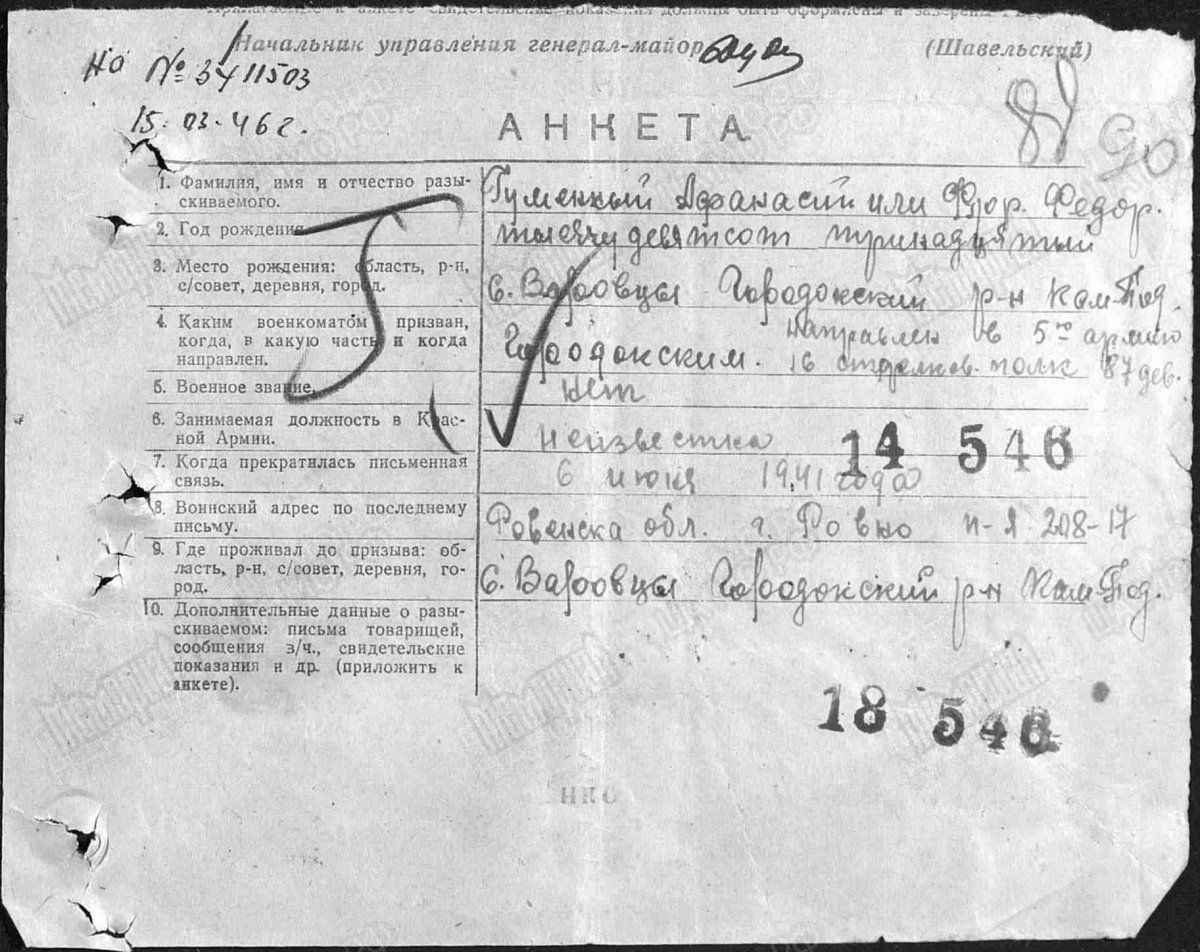 Прилагаемые к анкете свидетельские показания должны быть оформлены и заверены
Начальник управления генерал-майор (Шавельский)
На № 3411503
15.03.46 г.
АНКЕТА
88 90
1. Фамилия, имя и отчество разыскиваемого.
Гуменный Афанасий или Фёдор.
2. Год рождения
тысячу девятсот тринадцятый
3. Место рождения: область, р-н, с/совет, деревня, город.
с. Варовцы Городокский р-н Кам-Под.
4. Каким военкоматом призван, когда, в какую часть и когда направлен.
Городокским. направлен в 5-ю армию
16 стрелков. полк 87 дев.
5. Военное звание.
нет
6. Занимаемая должность в Красной Армии.
неизвестна
14 546
7. Когда прекратилась письменная связь.
6 июня 1941 года
8. Воинский адрес по последнему письму.
Ровенска обл. г. Ровно п-я 208-17
9. Где проживал до призыва: область, р-н, с/совет, деревня, город.
с. Варовцы Городокский р-н Кам-Под.
10. Дополнительные данные о разыскиваемом: письма товарищей, сообщения з/ч., свидетельские показания и др. (приложить к анкете).
18 546
НКО